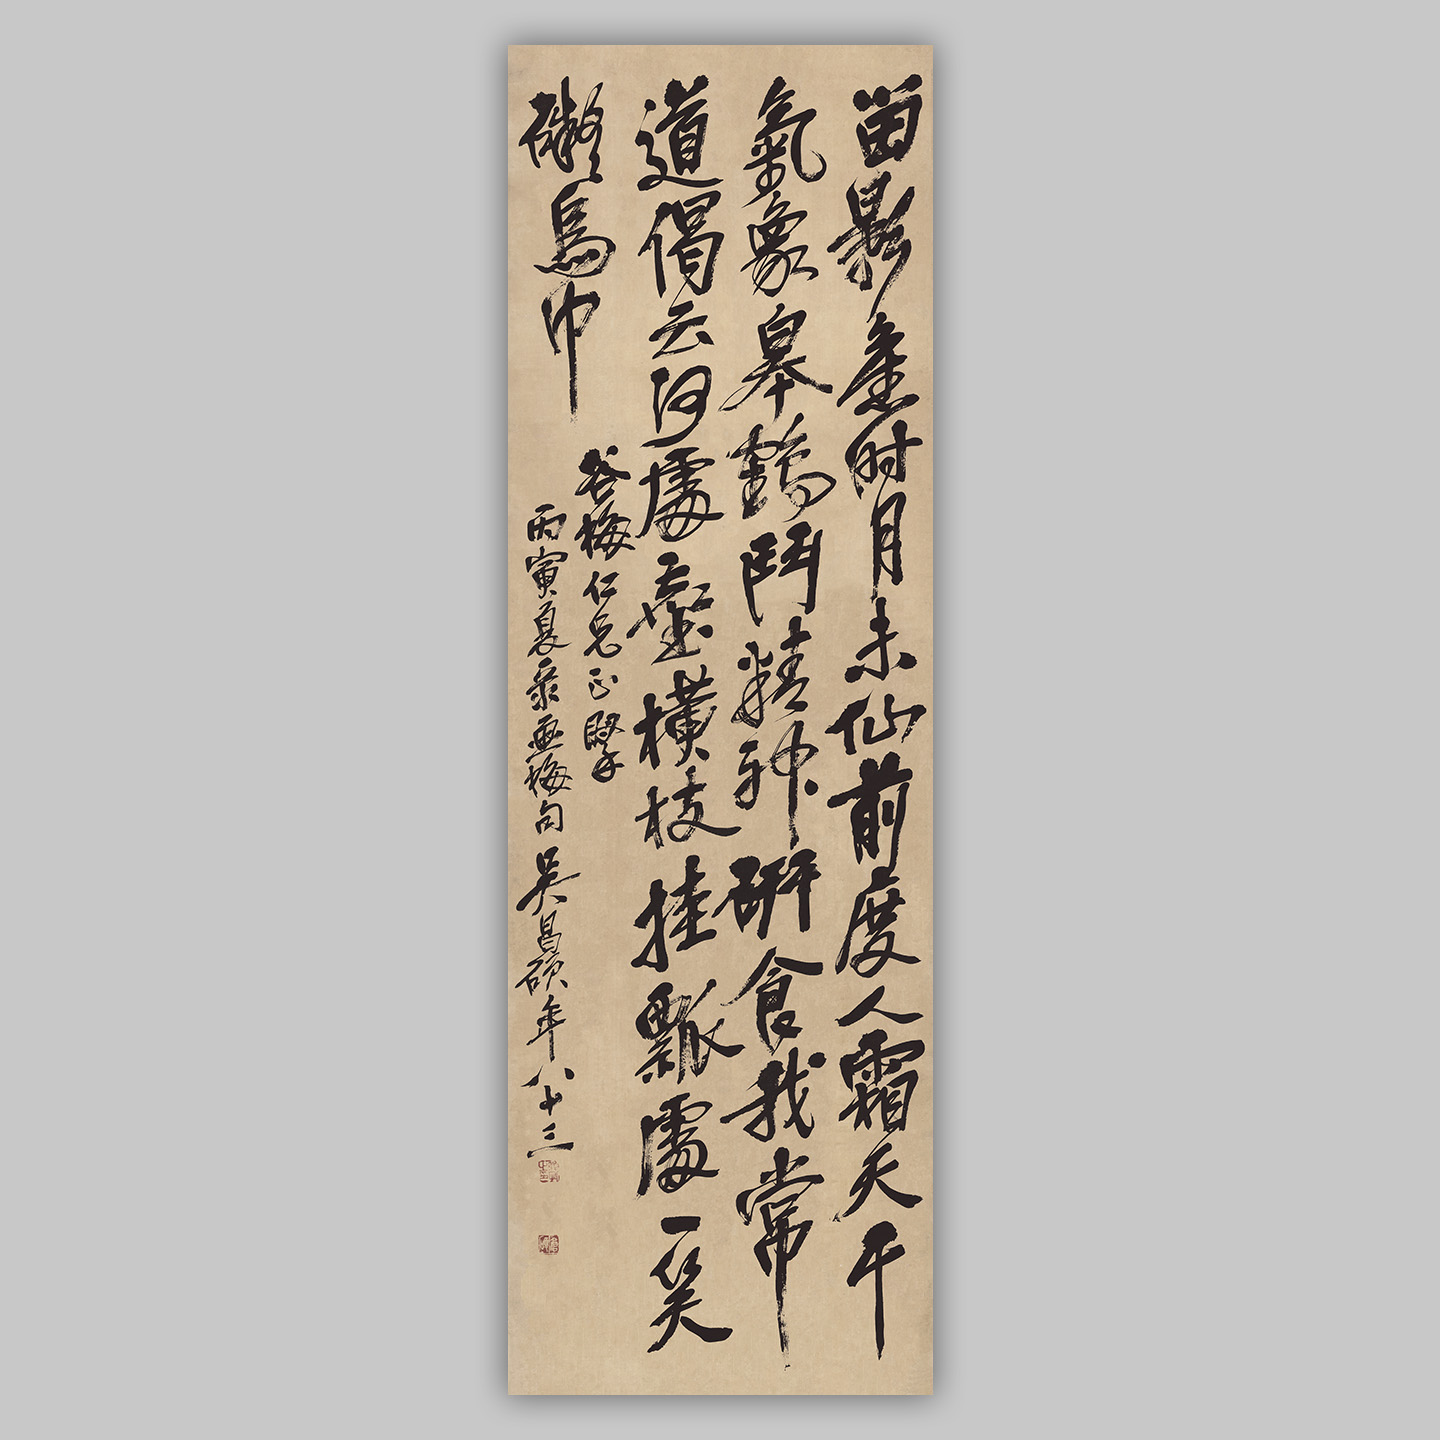 留影虛時月未仙前度人霜天干
氣象皋鶴鬥精神研食我常
道偈云何處虛橫枝挂瓢處一笑
礙烏巾
谷梅仁兄正擘
丙寅夏录画梅句吳昌碩年八十三